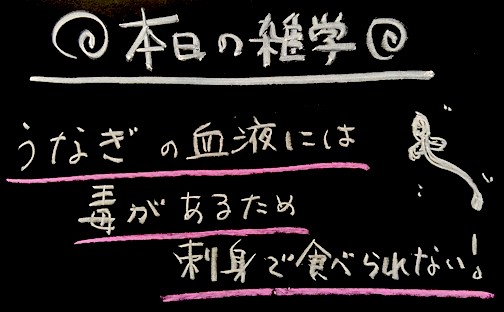 本日の雑学
うなぎの血液には
毒があるため
刺身で食べられない!